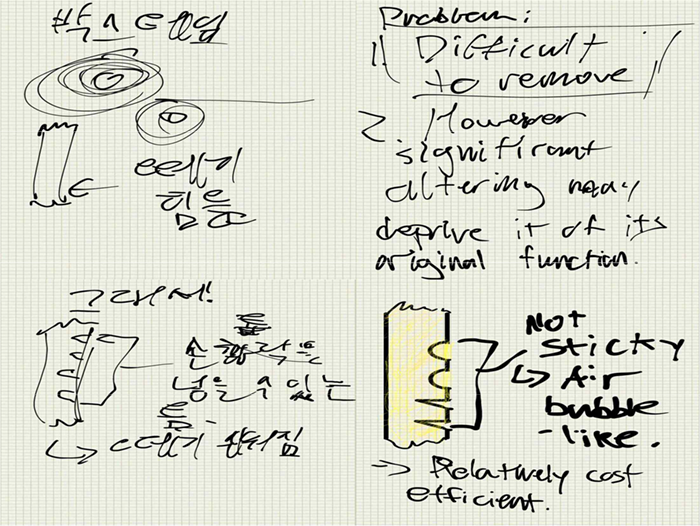 박스 테잎
힘듦
Problem:
1. Difficult
to remove
2. However
significant
altering may
deprive it of its
original function.
그래서!
손
넣을 수 있는
Not
sticky
↳ Air
bubble
-like.
⇒ Relatively cost
efficient.